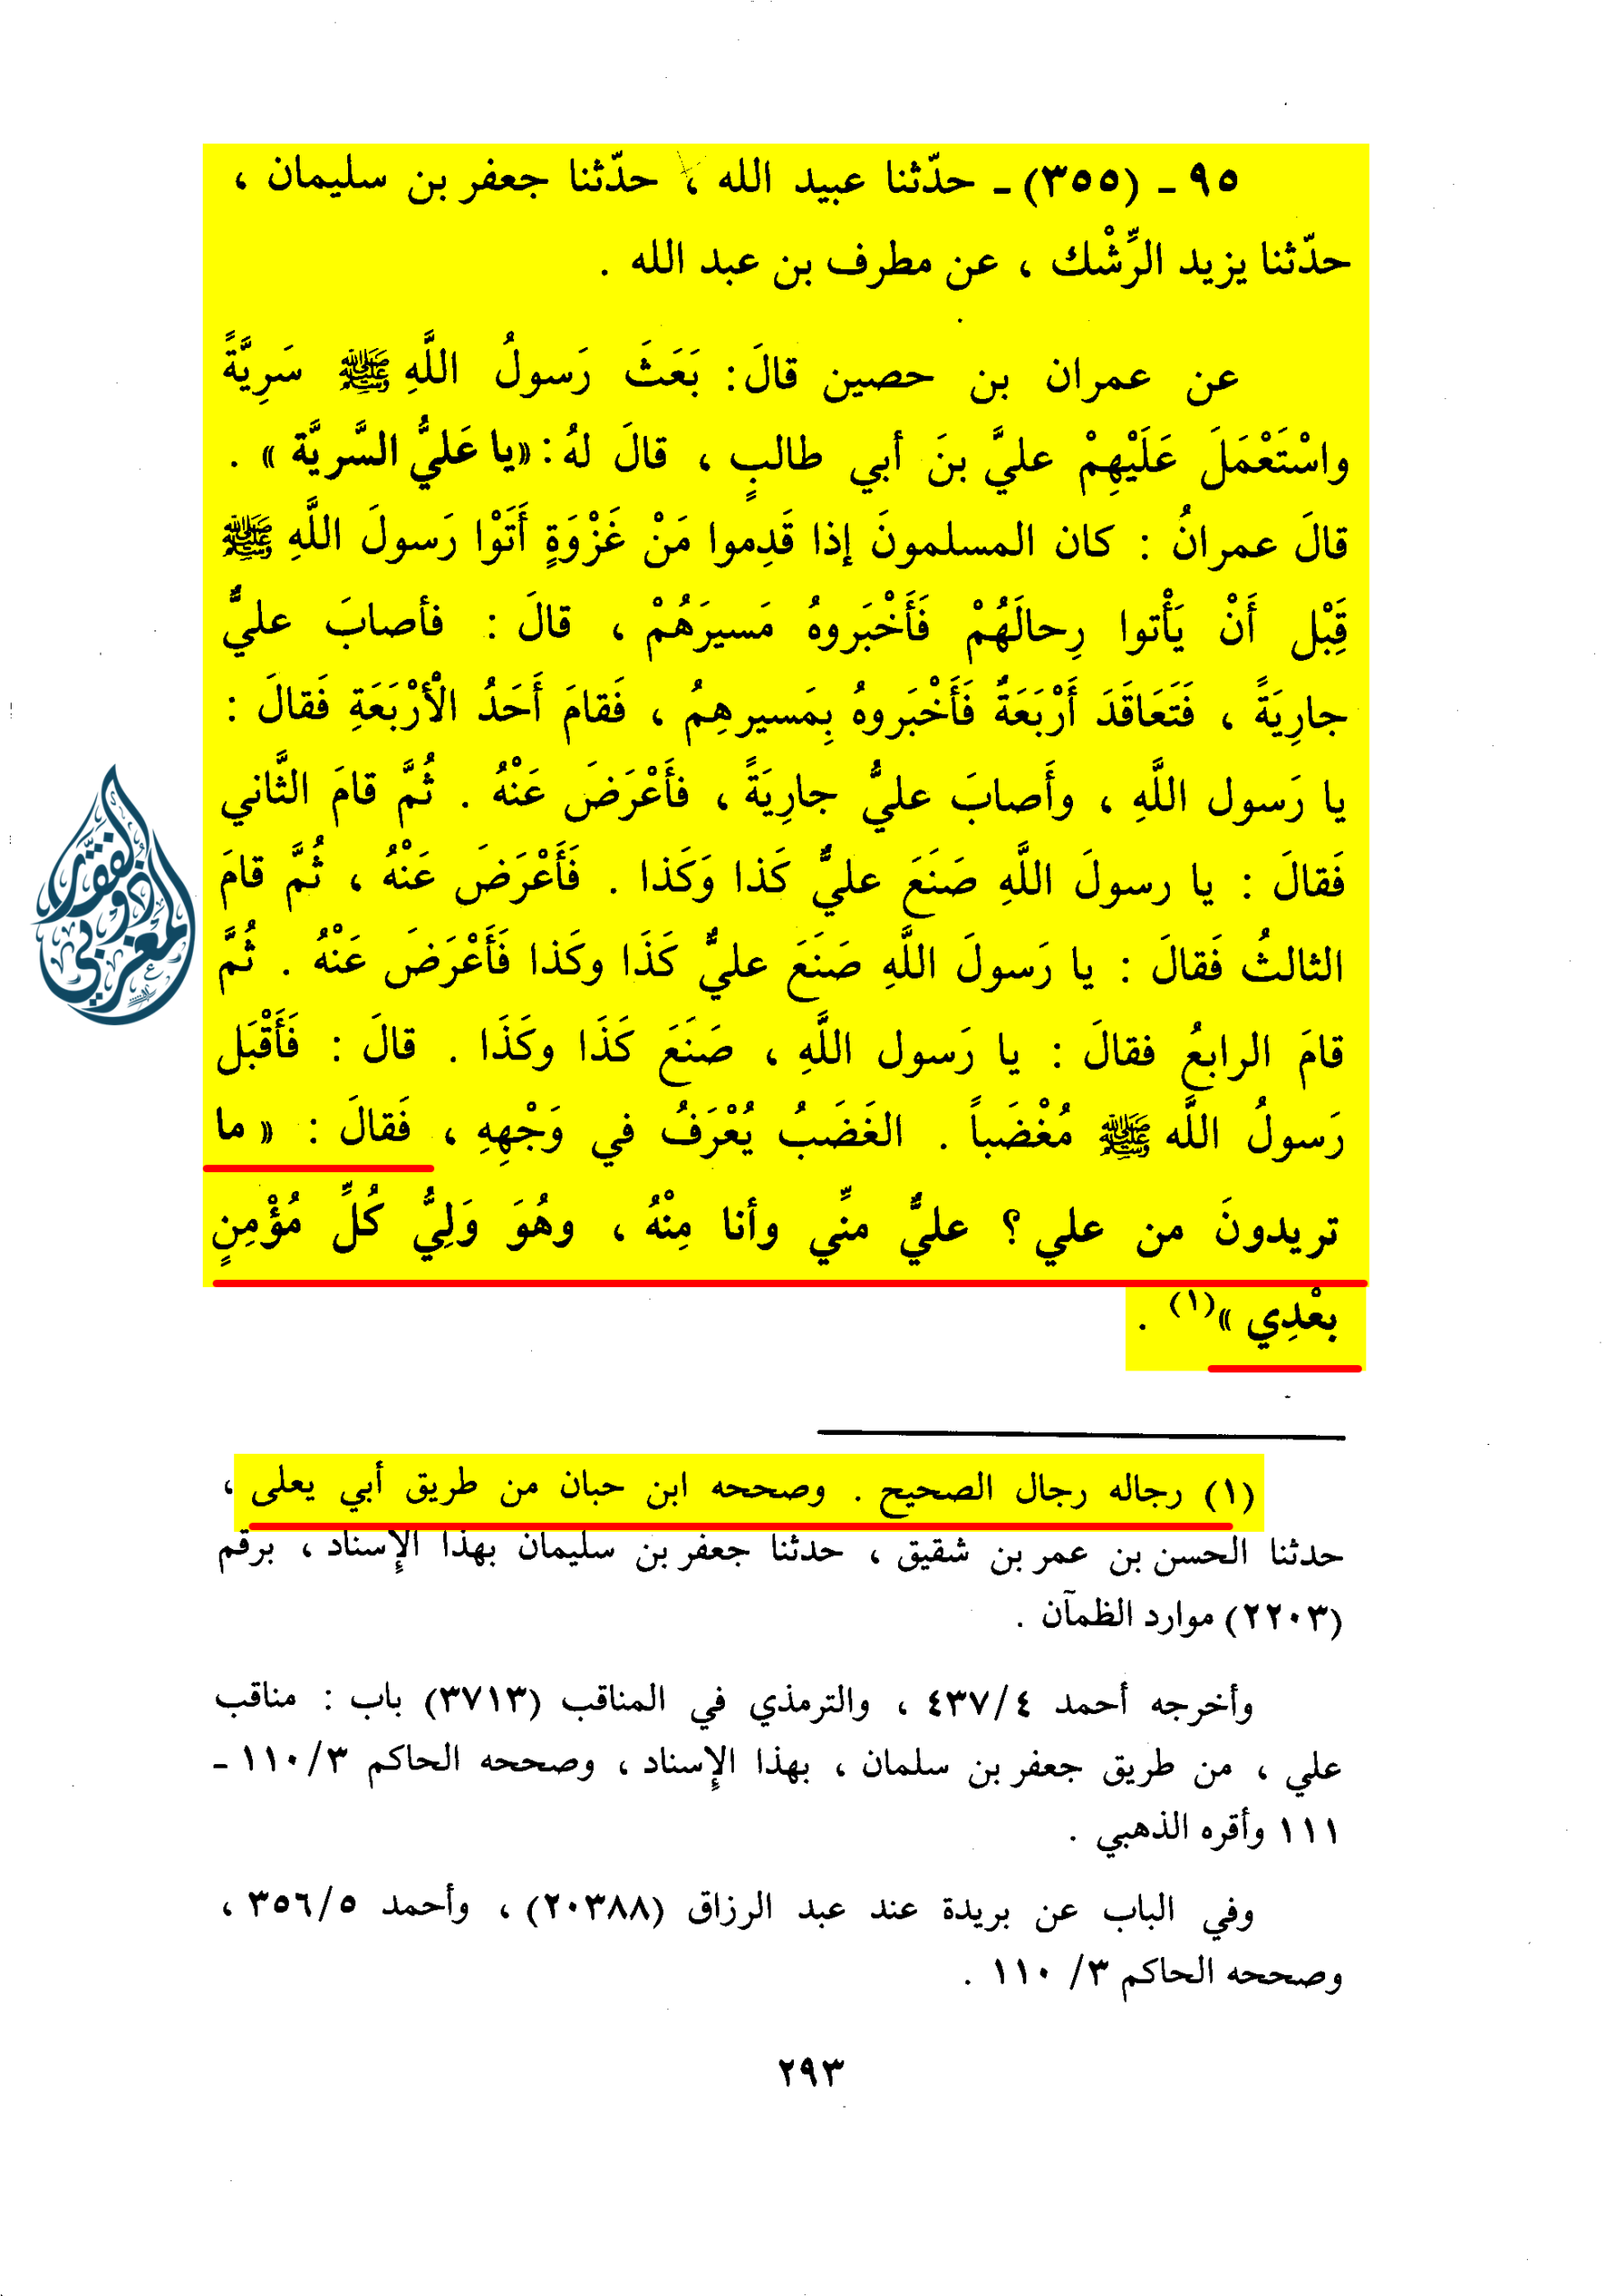 ٩٥ ـ (٣٥٥) ـ حدّثنا عبيد الله ، حدّثنا جعفر بن سليمان ،
حدّثنا يزيد الرِّشْك ، عن مطرف بن عبد الله .
عن عمران بن حصين قالَ: بَعَثَ رَسولُ اللَّهِ ﷺ سَرِيَّةً
واسْتَعْمَلَ عَلَيْهِمْ عليَّ بنَ أبي طالبٍ ، قالَ لهُ: «يا عَليُّ السَّريَّة» .
قالَ عمرانُ : كان المسلمونَ إذا قَدِموا مَنْ غَزْوَةٍ أَتَوْا رَسولَ اللَّهِ ﷺ
قِبْل أَنْ يَأْتوا رِحالَهُمْ فَأَخْبَروهُ مَسيرَهُمْ ، قالَ : فأصابَ عليٌّ
جارِيَةً ، فَتَعَاقَدَ أَرْبَعَةٌ فَأَخْبَروهُ بِمَسيرهِمُ ، فَقامَ أَحَدُ الْأرْبَعَةِ فَقالَ :
يا رَسول اللَّهِ ، وأَصابَ عليٌّ جارِيَةً ، فأَعْرَضَ عَنْهُ . ثُمَّ قامَ الثَّاني
فَقالَ : يا رسولَ اللَّهِ صَنَعَ عليٌّ كَذا وَكَذا . فَأَعْرَضَ عَنْهُ ، ثُمَّ قامَ
الثالثُ فَقالَ : يا رَسولَ اللَّهِ صَنَعَ عليٌّ كَذَا وكَذا فَأَعْرَضَ عَنْهُ . ثُمَّ
قامَ الرابعُ فقالَ : يا رَسول اللَّهِ ، صَنَعَ كَذَا وكَذَا . قالَ : فَأَقْبَل
رَسولُ اللَّه ﷺ مُغْضَباً . الغَضَبُ يُعْرَفُ في وَجْهِهِ ، فَقالَ : « ما
تريدونَ من علي ؟ عليٌّ منِّي وأنا مِنْهُ ، وهُوَ وَلِيُّ كُلِّ مُؤْمِنٍ
بعْدِي »(١) .
(١) رجاله رجال الصحيح . وصححه ابن حبان من طريق أبي يعلى ،
حدثنا الحسن بن عمر بن شقيق ، حدثنا جعفر بن سليمان بهذا الإسناد ، برقم
(٢٢٠٣) موارد الظمآن .
وأخرجه أحمد ٤/٤٣٧ ، والترمذي في المناقب (٣٧١٣) باب : مناقب
علي ، من طريق جعفر بن سلمان ، بهذا الإسناد ، وصححه الحاكم ٣/١١٠ ـ
١١١ وأقره الذهبي .
وفي الباب عن بريدة عند عبد الرزاق (٢٠٣٨٨) ، وأحمد ٥/٣٥٦ ،
وصححه الحاكم ٣/ ١١٠ .
٢٩٣
ذو الفقار
المغربي